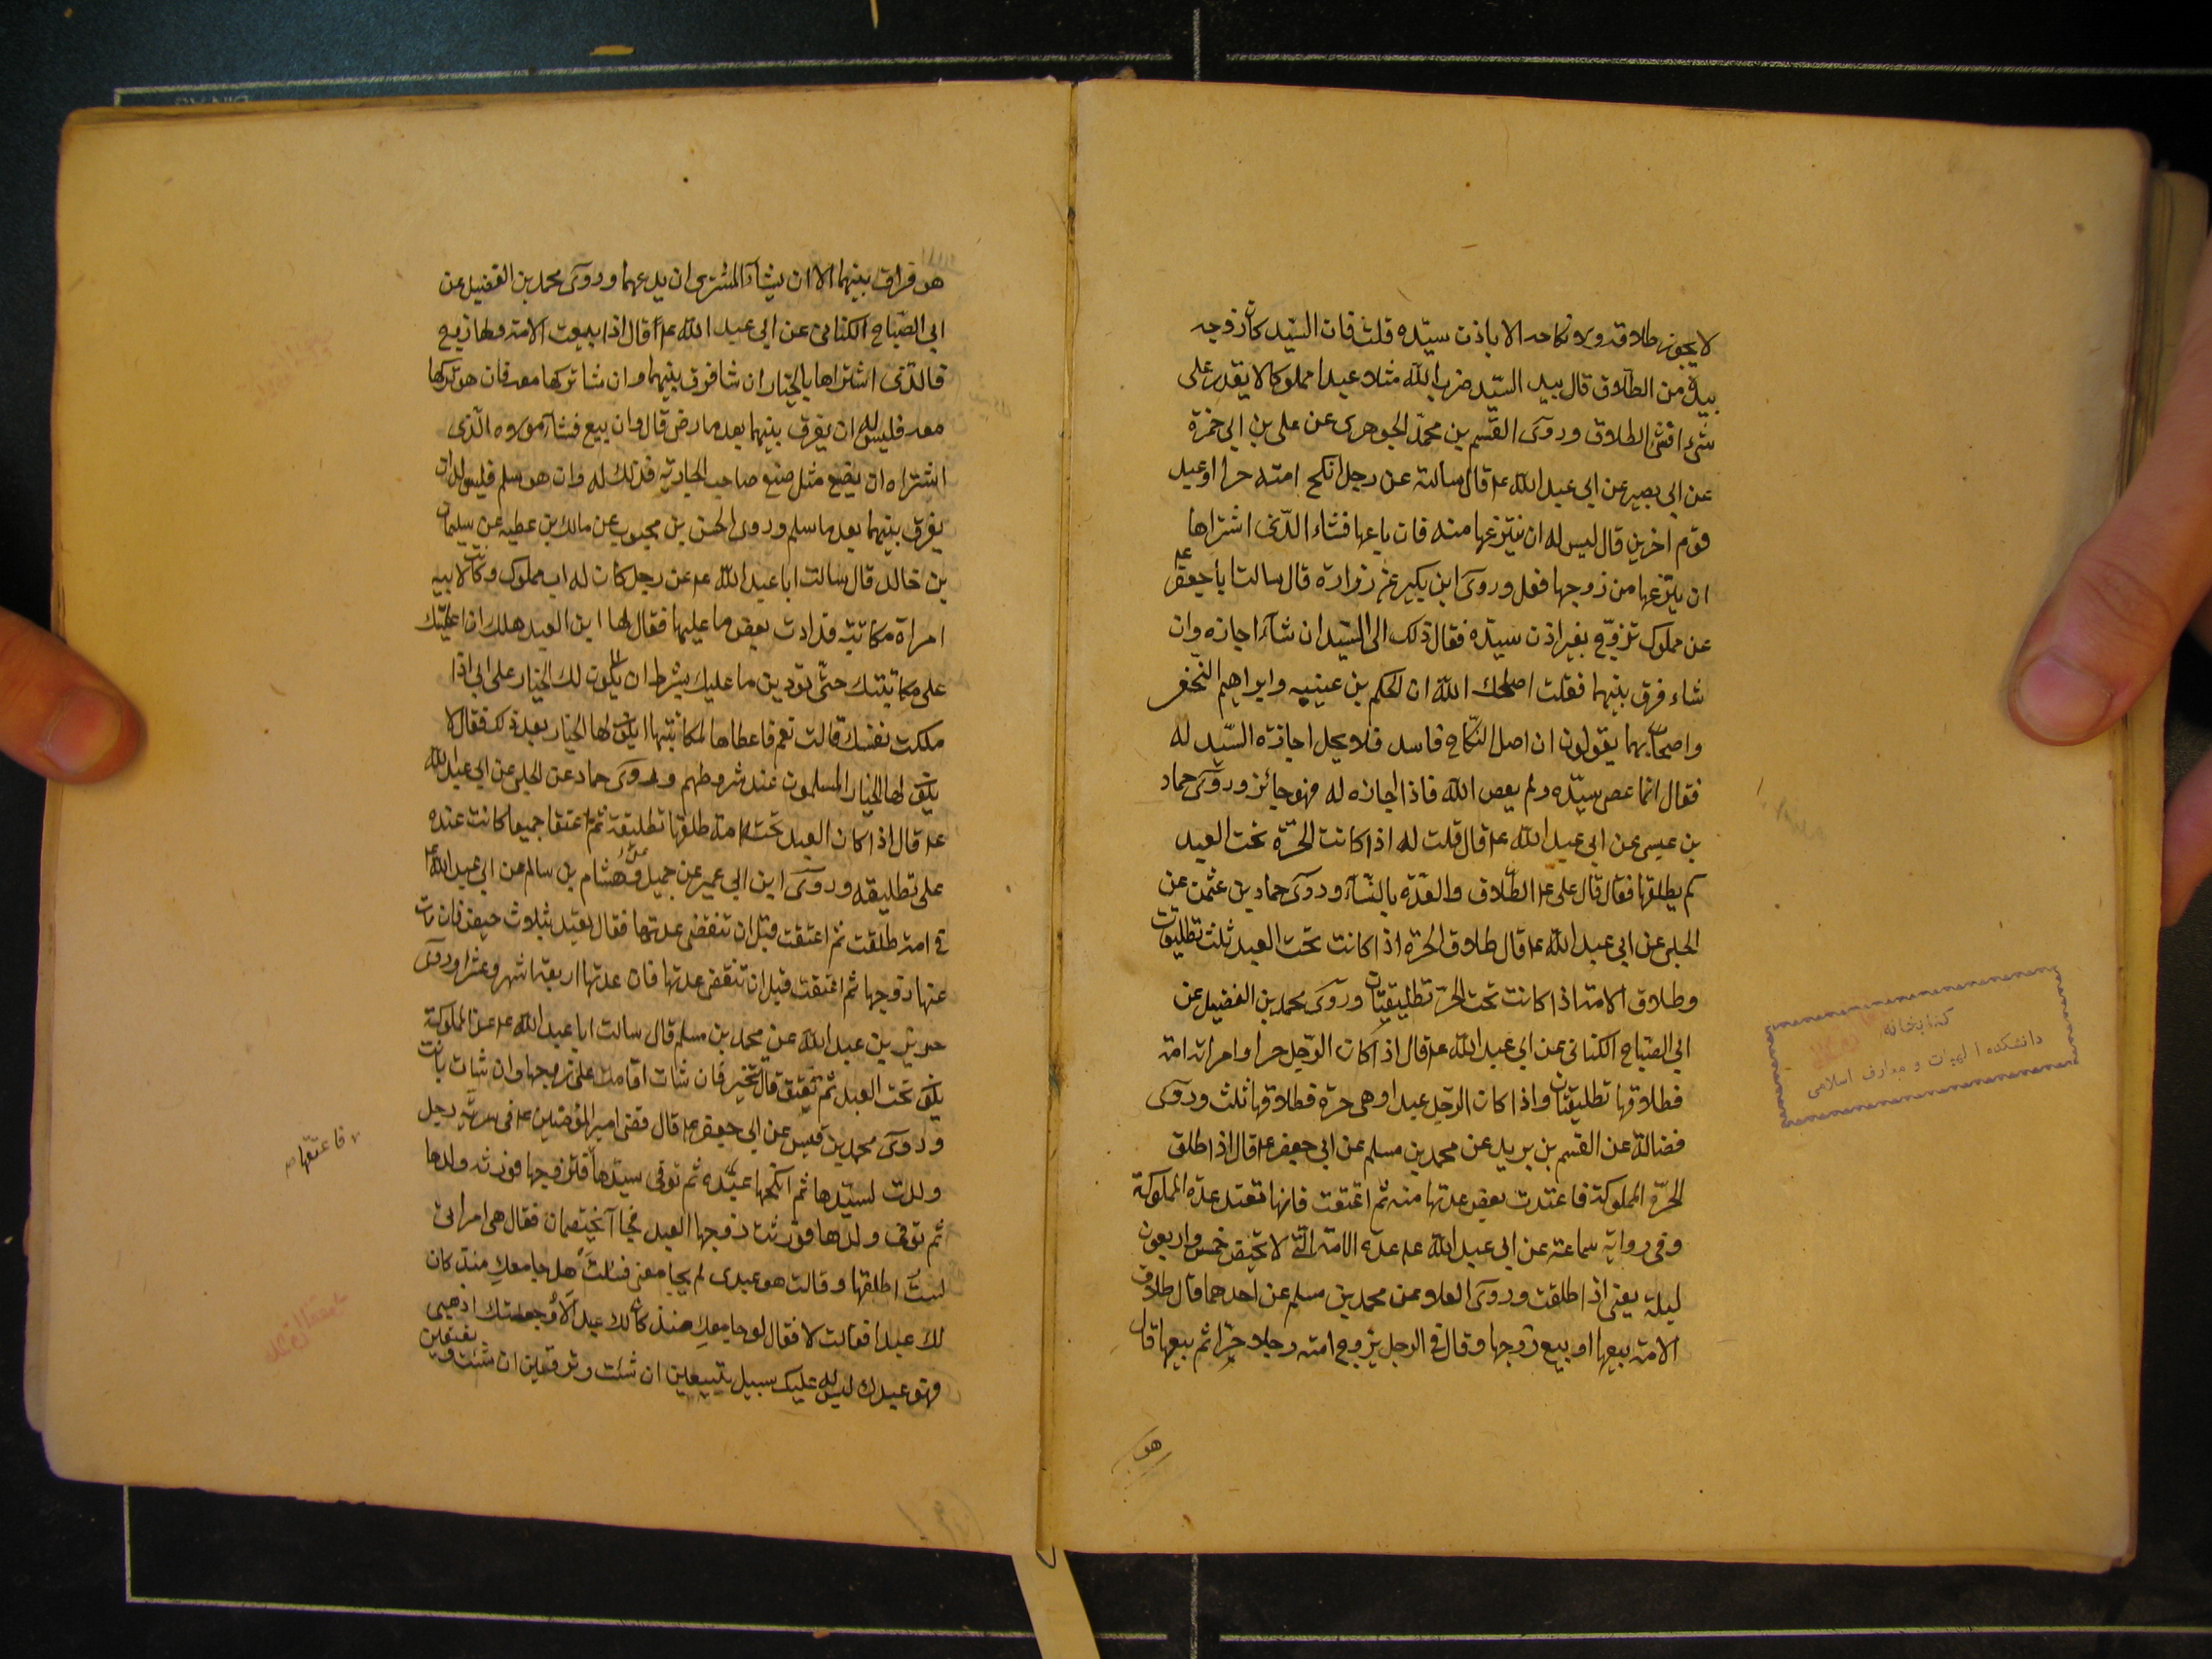 لا يجوز طلاقه ولا نكاحه الا باذن سيّده قلت فان السّيد كان زوجه
بيد من الطلاق قال بيد السيّد ضرب اللّه مثلا عبدا مملوكا لا يقدر على
شىء افشئ الطلاق وروى القسم بن محمّد الجوهرى عن على بن ابي حمزة
عن ابى بصير عن ابى عبد اللّه ع قال سالته عن رجل انكح امته حرا او عبد
قوم اخرين قال ليس له ان ينتزعها منه فان باعها فشاء الّذى اشتراها
ان ينتزعها من زوجها فعل وروى ابن بكير عن زرارة قال سالت ابا جعفر ع
عن مملوك تزوّج بغير اذن سيّده فقال ذلك الى السّيد ان شاء اجازه وان
شاء فرق بينهما فقلت اصلحك اللّه ان الحكم بن عيينه وابراهيم النّخعى
واصحابهما يقولون ان اصل النّكاح فاسد فلا يحل اجازة السّيد له
فقال انما عصى سيّده ولم يعص اللّه فاذا اجازه له فهو جائز وروى حماد
بن عيسى عن ابى عبد اللّه ع قال قلت له اذا كانت الحرّة تحت العبد
كم يطلقها فقال قال على ع الطلاق والعدّة بالنّساء وروى حماد بن عثمن عن
الحلبى عن ابى عبد اللّه ع قال طلاق الحرّة اذا كانت تحت العبد ثلث تطليقات
وطلاق الامة اذا كانت تحت الحرّ تطليقتان وروى محمد بن الفضيل عن
ابى الصّباح الكنانى عن ابى عبد اللّه ع قال اذا كان الرّجل حرا وامراته امة
فطلاقها تطليقتان واذا كان الرّجل عبدا وهى حرة فطلاقها ثلث وروى
فضالة عن القسم بن بريد عن محمد بن مسلم عن ابى جعفر ع قال اذا طلق
الحرّ المملوكة فاعتدت بعض عدتها منه ثم اعتقت فانها تعتد عدّة المملوكة
وفى رواية سماعة عن ابى عبد اللّه ع عدّة الامة الّتى لا تحيض خمس واربعون
ليلة يعنى اذا طلقت وروى العلا عن محمد بن مسلم عن احدهما قال طلاق
الامة بيعها او بيع زوجها وقال فى الرجل يزوج امته رجلا حرّا ثم يبيعها قال
هو
كتابخانه
دانشكده الهيات و معارف اسلامى
هو فراق بينهما الا ان يشاء المشترى ان يدعهما وروى محمد بن الفضيل عن
ابى الصّباح الكنانى عن ابى عبد اللّه ع قال اذا بيعت الامة ولها زوج
فالّذى اشتراها بالخيار ان شا فرق بينهما وان شا تركها معه فان هو تركها
معه فليس له ان يفرق بينهما بعد ما رضى قال وان بيع فشاء مولاه الّذى
اشتراه ان يصنع مثل صنع صاحب الجارية فذلك له وان هو سلم فليس له ان
يفرق بينهما بعد ما سلم وروى الحسن بن محبوب عن مالك بن عطيه عن سليمان
بن خالد قال سالت ابا عبد اللّه ع عن رجل كان له اب مملوك وكانت لابيه
امراة مكاتبة قد ادت بعض ما عليها فقال لها ابن العبد هل لك ان اعينك
على مكاتبتك حتّى تودين ما عليك بشرط ان لا يكون لك الخيار على ابى اذا
ملكت نفسك قالت نعم فاعطاها لمكاتبتها ايكون لها الخيار بعد ذلك فقال لا
يكون لها الخيار المسلمون عند شروطهم وروى حماد عن الحلبى عن ابى عبد اللّه
ع قال اذا كان العبد تحته امة طلقها تطليقة ثم اعتقا جميعا كانت عنده
على تطليقه وروى ابن ابى عمير عن جميل وهشام بن سالم عن ابى عبد اللّه ع
فى امة طلقت ثم اعتقت قبل ان تنقضى عدتها فقال تعتد بثلاث حيض فان مات
عنها زوجها ثم اعتقت قبل ان تنقضى عدتها فان عدتها اربعة اشهر وعشرا وروى
حريز بن عبد اللّه عن محمد بن مسلم قال سالت ابا عبد اللّه ع عن المملوكة
يكون تحت العبد ثم تعتق قال تخير فان شات اقامت على زوجها وان شات بانت
وروى محمد بن قيس عن ابى جعفر ع قال قضى امير المؤمنين ع فى سرية رجل
ولدت لسيّدها ثم انكحها عبده ثم توفى سيّدها فلتزوجها فورثه ولدها
ثم توفى ولدها فورثت زوجها العبد فجاآ يختصمان فقال هى امراتى
لست اطلقها وقالت هو عبدى لم يجامعنى فسئلت هل جامعك منذ كان
لك عبدا فقالت لا فقال لو جامعك منذ كان لك عبدا لاوجعتك اذهبى
فهو عبدك ليس له عليك سبيل تبيعين ان شئت وترقين ان شئت وتعتقين
فاعتقها